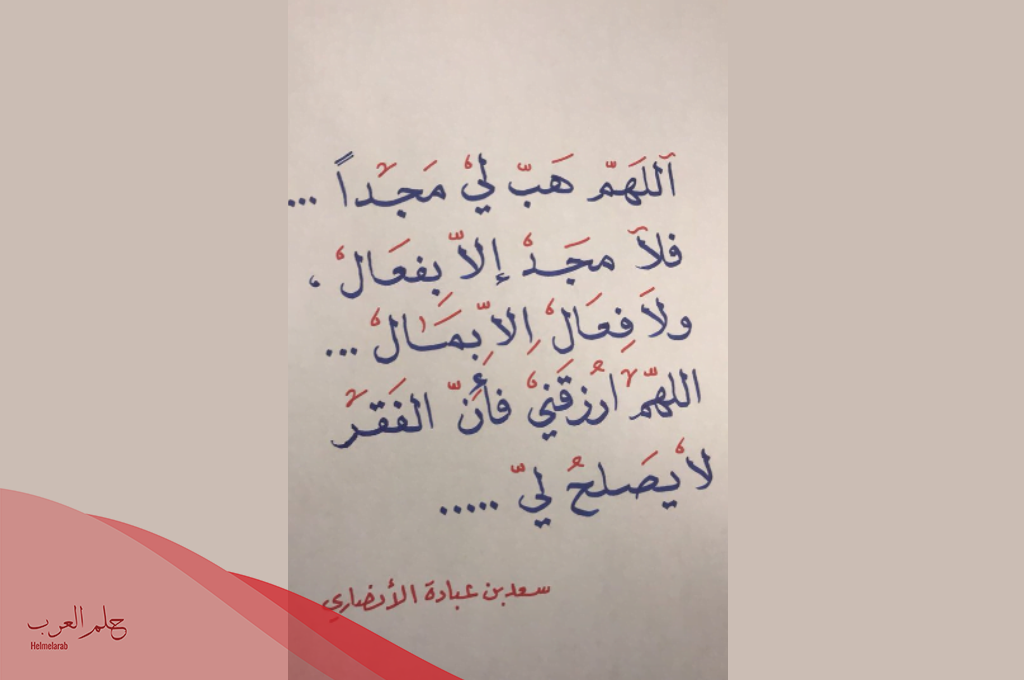 اَللَهّم هَبّ ليْ مَجَداً ...
فلاَ مجَدْ إلاّ بِفعَالْ ،
ولاَ فِعَالْ اِلاّ بِمَالْ ...
اللهّم ارُزقَنيْ فأِنّ الفَقرَ
لاْ يَصَلحُ ليّ .....
سعد بن عبادة الأنصاري
حلم العرب
Helmelarab